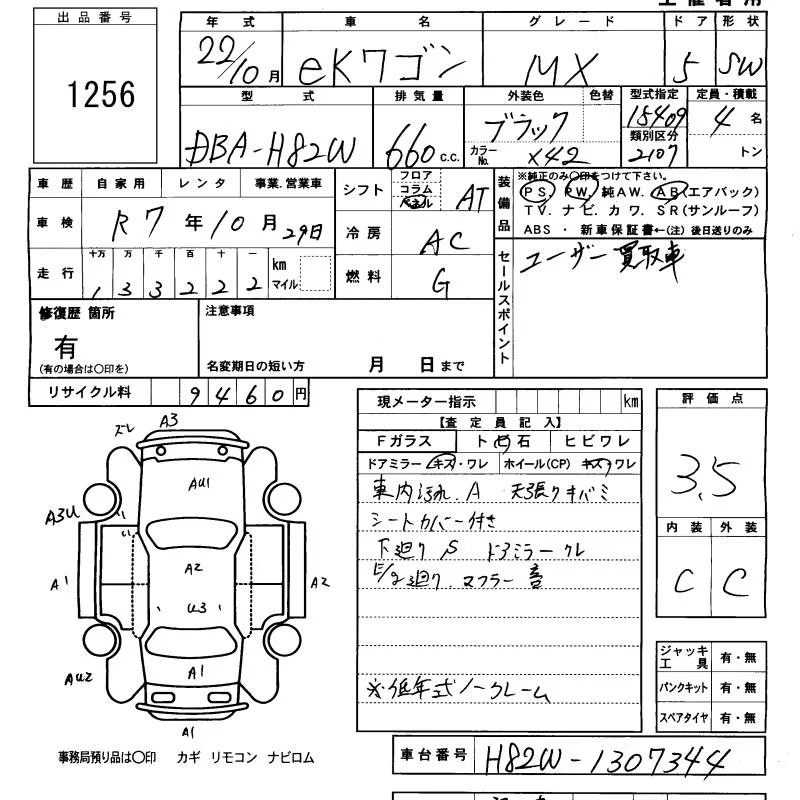 出品番号
1256
年式 車名 グレード ドア 形状
22/10月 eKワゴン MX 5 SW
型式 排気量 外装色 色替 型式指定 定員・積載
DBA-H82W 660 c.c. ブラック 15409 4名
カラーNo. X42 類別区分 2107 トン
車歴 自家用 レンタ 事業.営業車
車検 R7年10月29日
走行 十万 万 千 百 十 一 km マイル
1 3 3 2 2 2
シフト フロア コラム パネル AT
冷房 AC
燃料 G
装備品
※純正のみ○印をつけて下さい。
PS. PW. 純AW. AB(エアバック)
TV. ナビ. カワ. SR(サンルーフ)
ABS ・ 新車保証書←(注) 後日送りのみ
セールスポイント
ユーザー買取車
修復歴 箇所
有
(有の場合は○印を)
注意事項
名変期日の短い方 月 日まで
リサイクル料 9460円
現メーター指示 km
【査定員記入】
Fガラス ト石 ヒビワレ
ドアミラー キズ・ワレ ホイール(CP) キズ・ワレ
車内汚れ.A 天張りキバミ
シートカバー付き
下廻りS ドアミラークレ
E/g廻り.マフラー音
※低年式ノークレーム
評価点
3.5
内装 外装
C C
ジャッキ工具 有・無
パンクキット 有・無
スペアタイヤ 有・無
ズレ A3
AU1
A3U
A2
A1 A2
U3
AU2 A1
A1
事務局預り品は○印 カギ リモコン ナビロム
車台番号 H82W-1307344